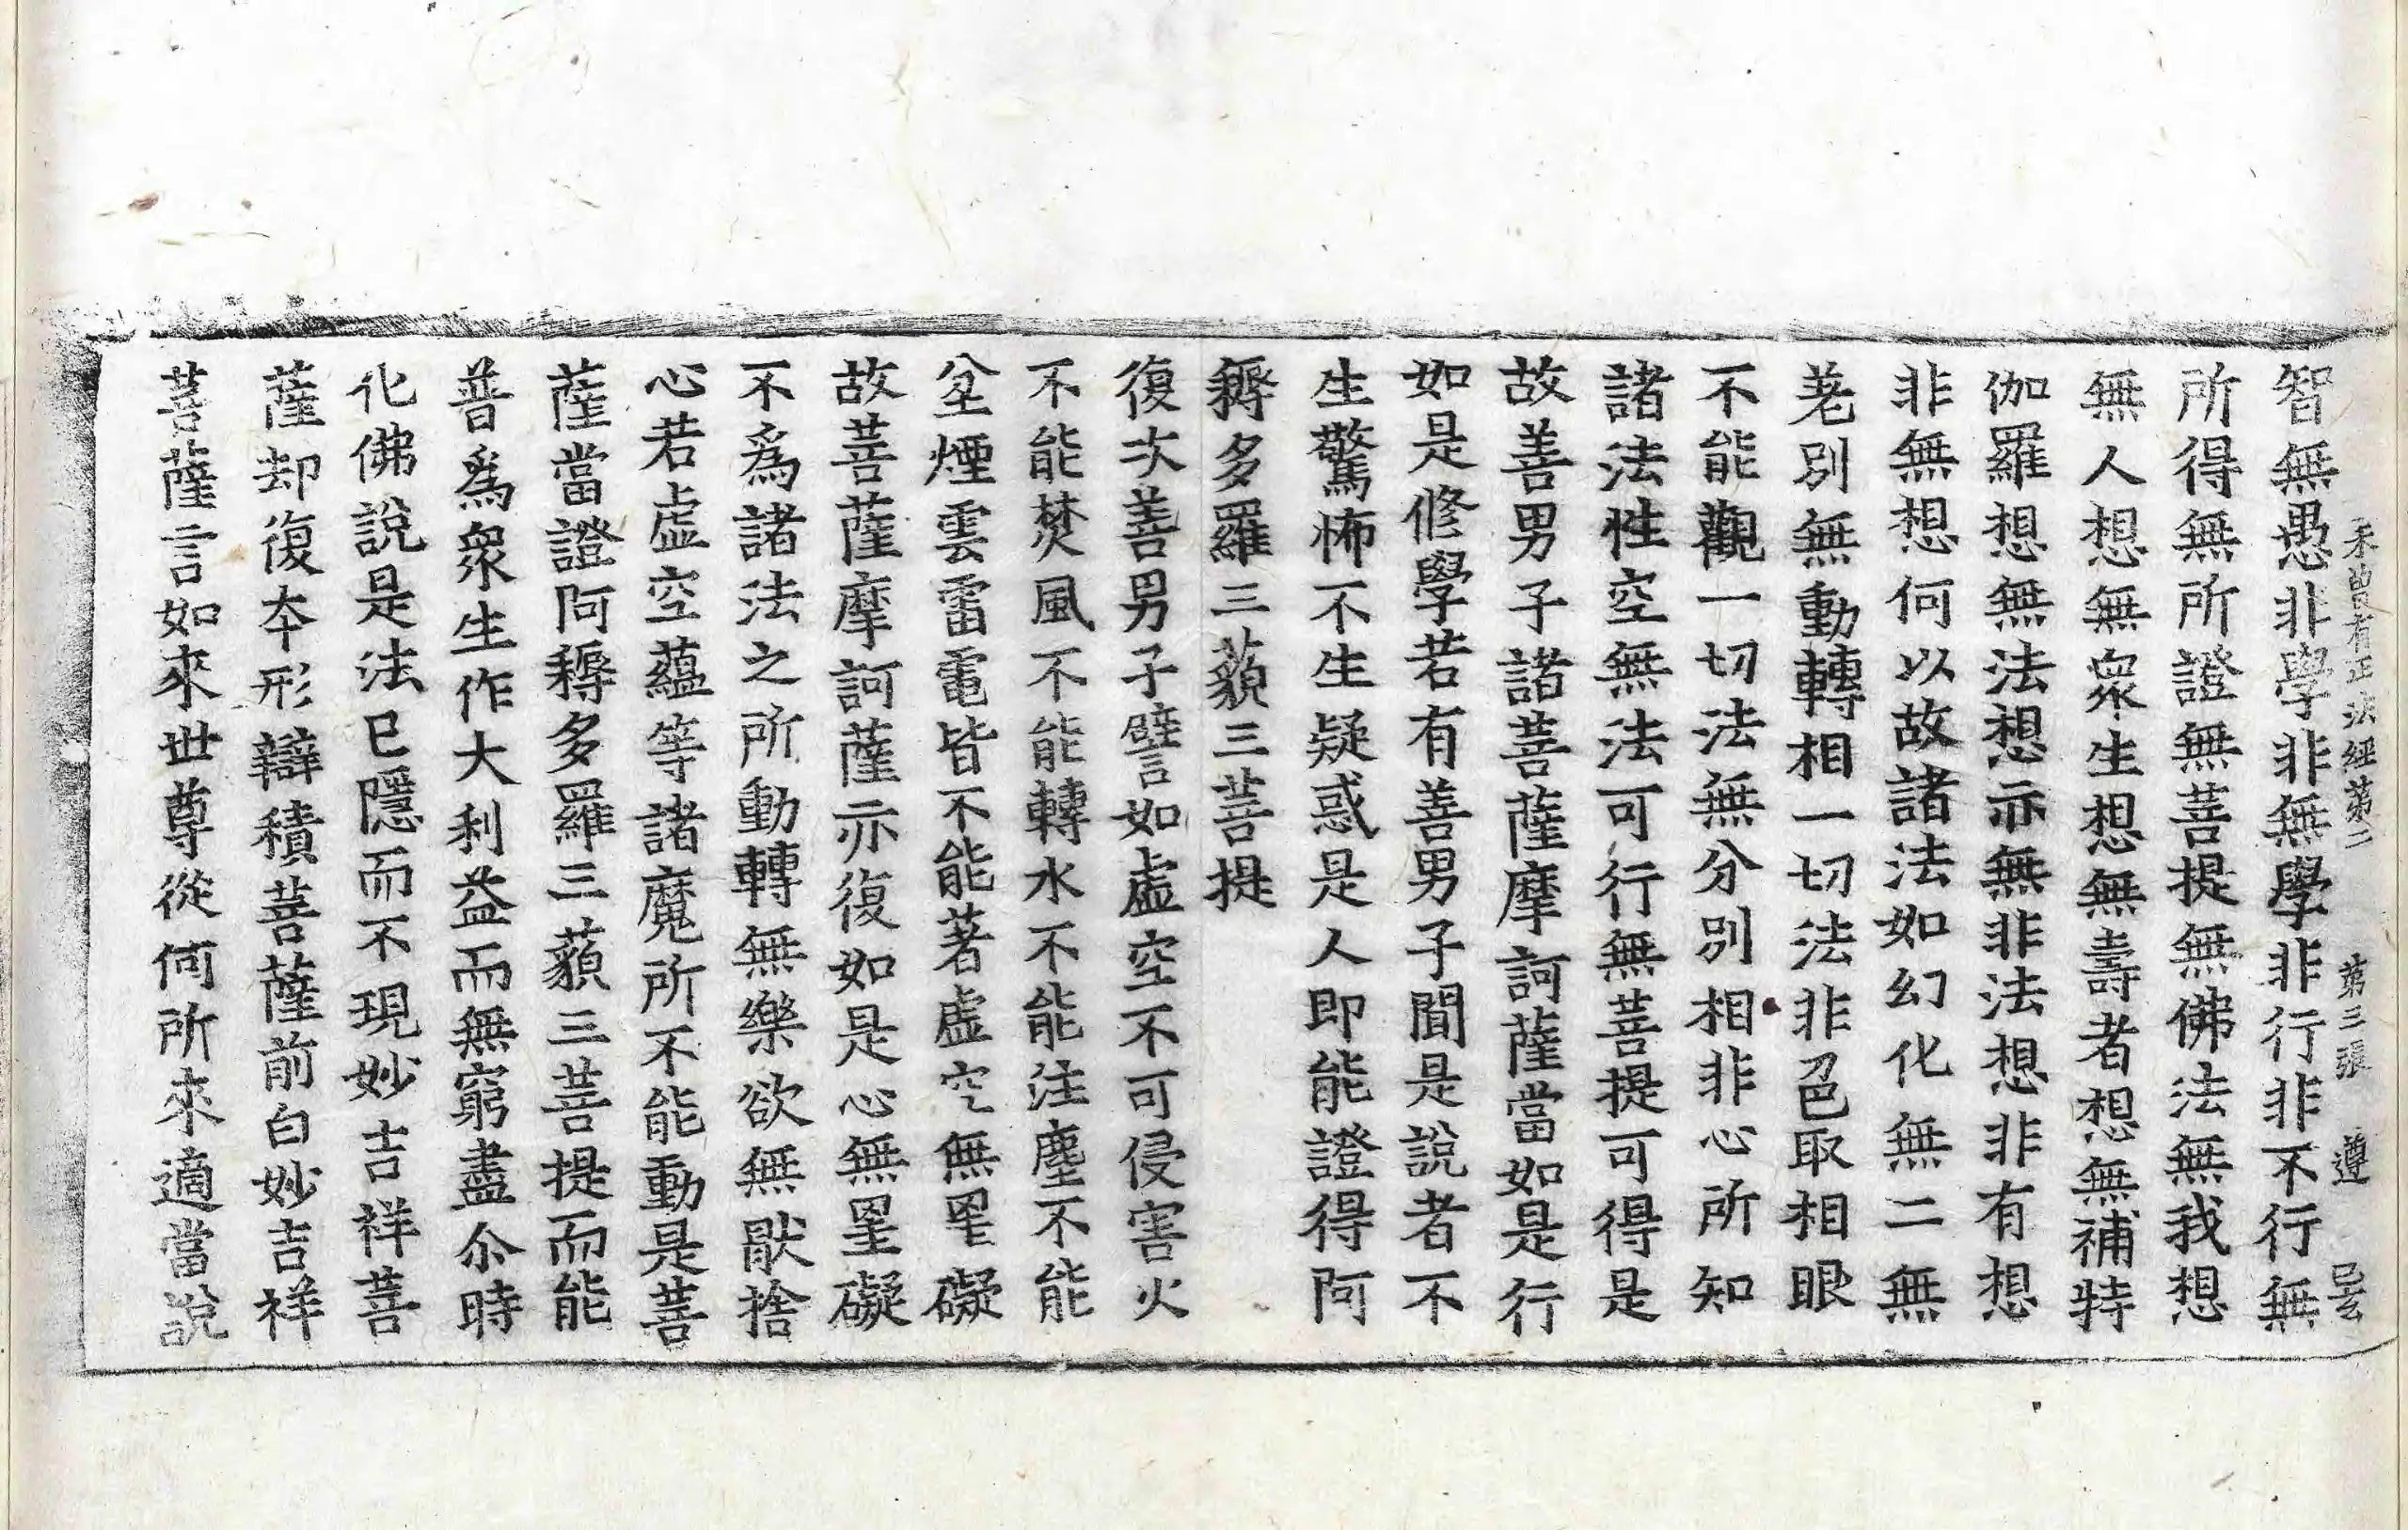 未曾有正法經第二　第三張　遵
智無愚非學非無學非行非不行無
所得無所證無菩提無佛法無我想
無人想無眾生想無壽者想無補特
伽羅想無法想亦無非法想非有想
非無想何以故諸法如幻化無二無
老別無動轉相一切法非色取相眼
不能觀一切法無分別相非心所知
諸法性空無法可行無菩提可得是
故善男子諸菩薩摩訶薩當如是行
如是修學若有善男子聞是說者不
生驚怖不生疑惑是人即能證得阿
耨多羅三藐三菩提
復次善男子譬如虛空不可侵害火
不能焚風不能轉水不能注塵不能
坌煙雲雷電皆不能著虛空無罣礙
故菩薩摩訶薩亦復如是心無罣礙
不為諸法之所動轉無樂欲無猒捨
心若虛空蘊等諸魔所不能動是菩
薩當證阿耨多羅三藐三菩提而能
普為眾生作大利益而無窮盡尒時
化佛說是法已隱而不現妙吉祥菩
薩却復本形辯積菩薩前白妙吉祥
菩薩言如來世尊從何所來適當說